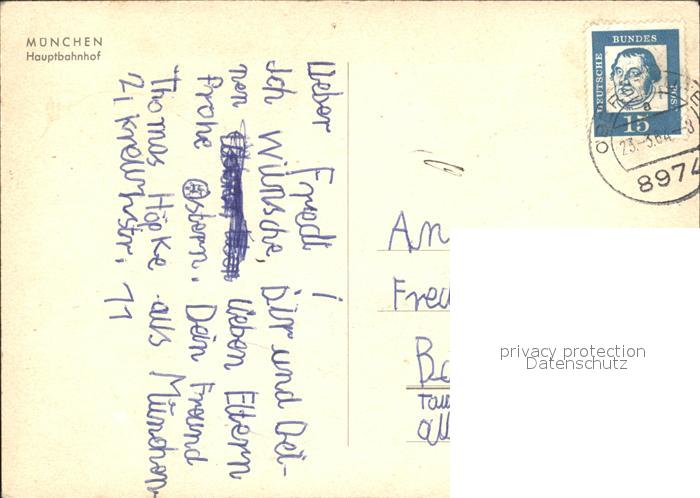 MÜNCHEN
Hauptbahnhof
Lieber Fredi!
Ich wünsche, Dir und Dei-
nen lieben Eltern
Frohe Ostern. Dein Freund
Thomas Höpke aus München
2,
str. 11
DEUTSCHE
BUNDES
POST
15
23.-3.64.
8974
An
Fred
privacy protection
Datenschutz